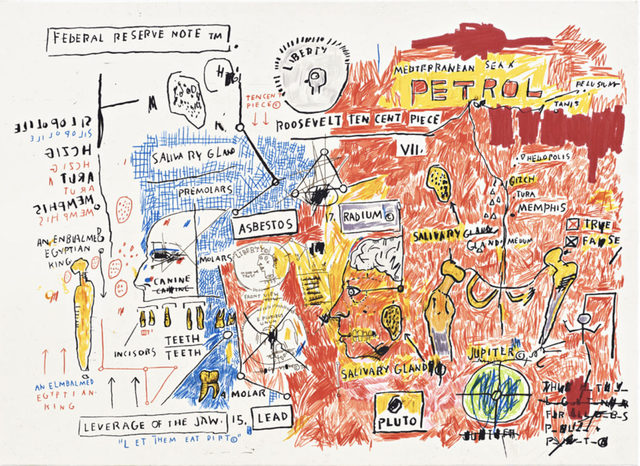 FEDERAL RESERVE NOTE TM.
LIBERTY
TEN CENT
PIECE ©
ROOSEVELT TEN CENT PIECE
MEDITERRANEAN SEA
PETROL
PELUSIUM
TANIS
VII.
HELIOPOLIS
GIZEH
TURA
MEMPHIS
MEMPHIS
MEMPHIS
SALIVARY GLAND
PREMOLARS
ASBESTOS
17.
RADIUM ©
SALIVARY GLAND
GLAND
TRUE
FALSE
AN ENBUALMED
EGYPTIAN
KING
MOLARS
LIBERTY
CANINE
CANINE
INCISORS
TEETH
TEETH
SALIVARY GLAND
JUPITER ©
AN ELMBALMED
EGYPTIAN-
KING
MOLAR
LEVERAGE OF THE JAW.
15.
LEAD
PLUTO
"LET THEM EAT DIRT©"